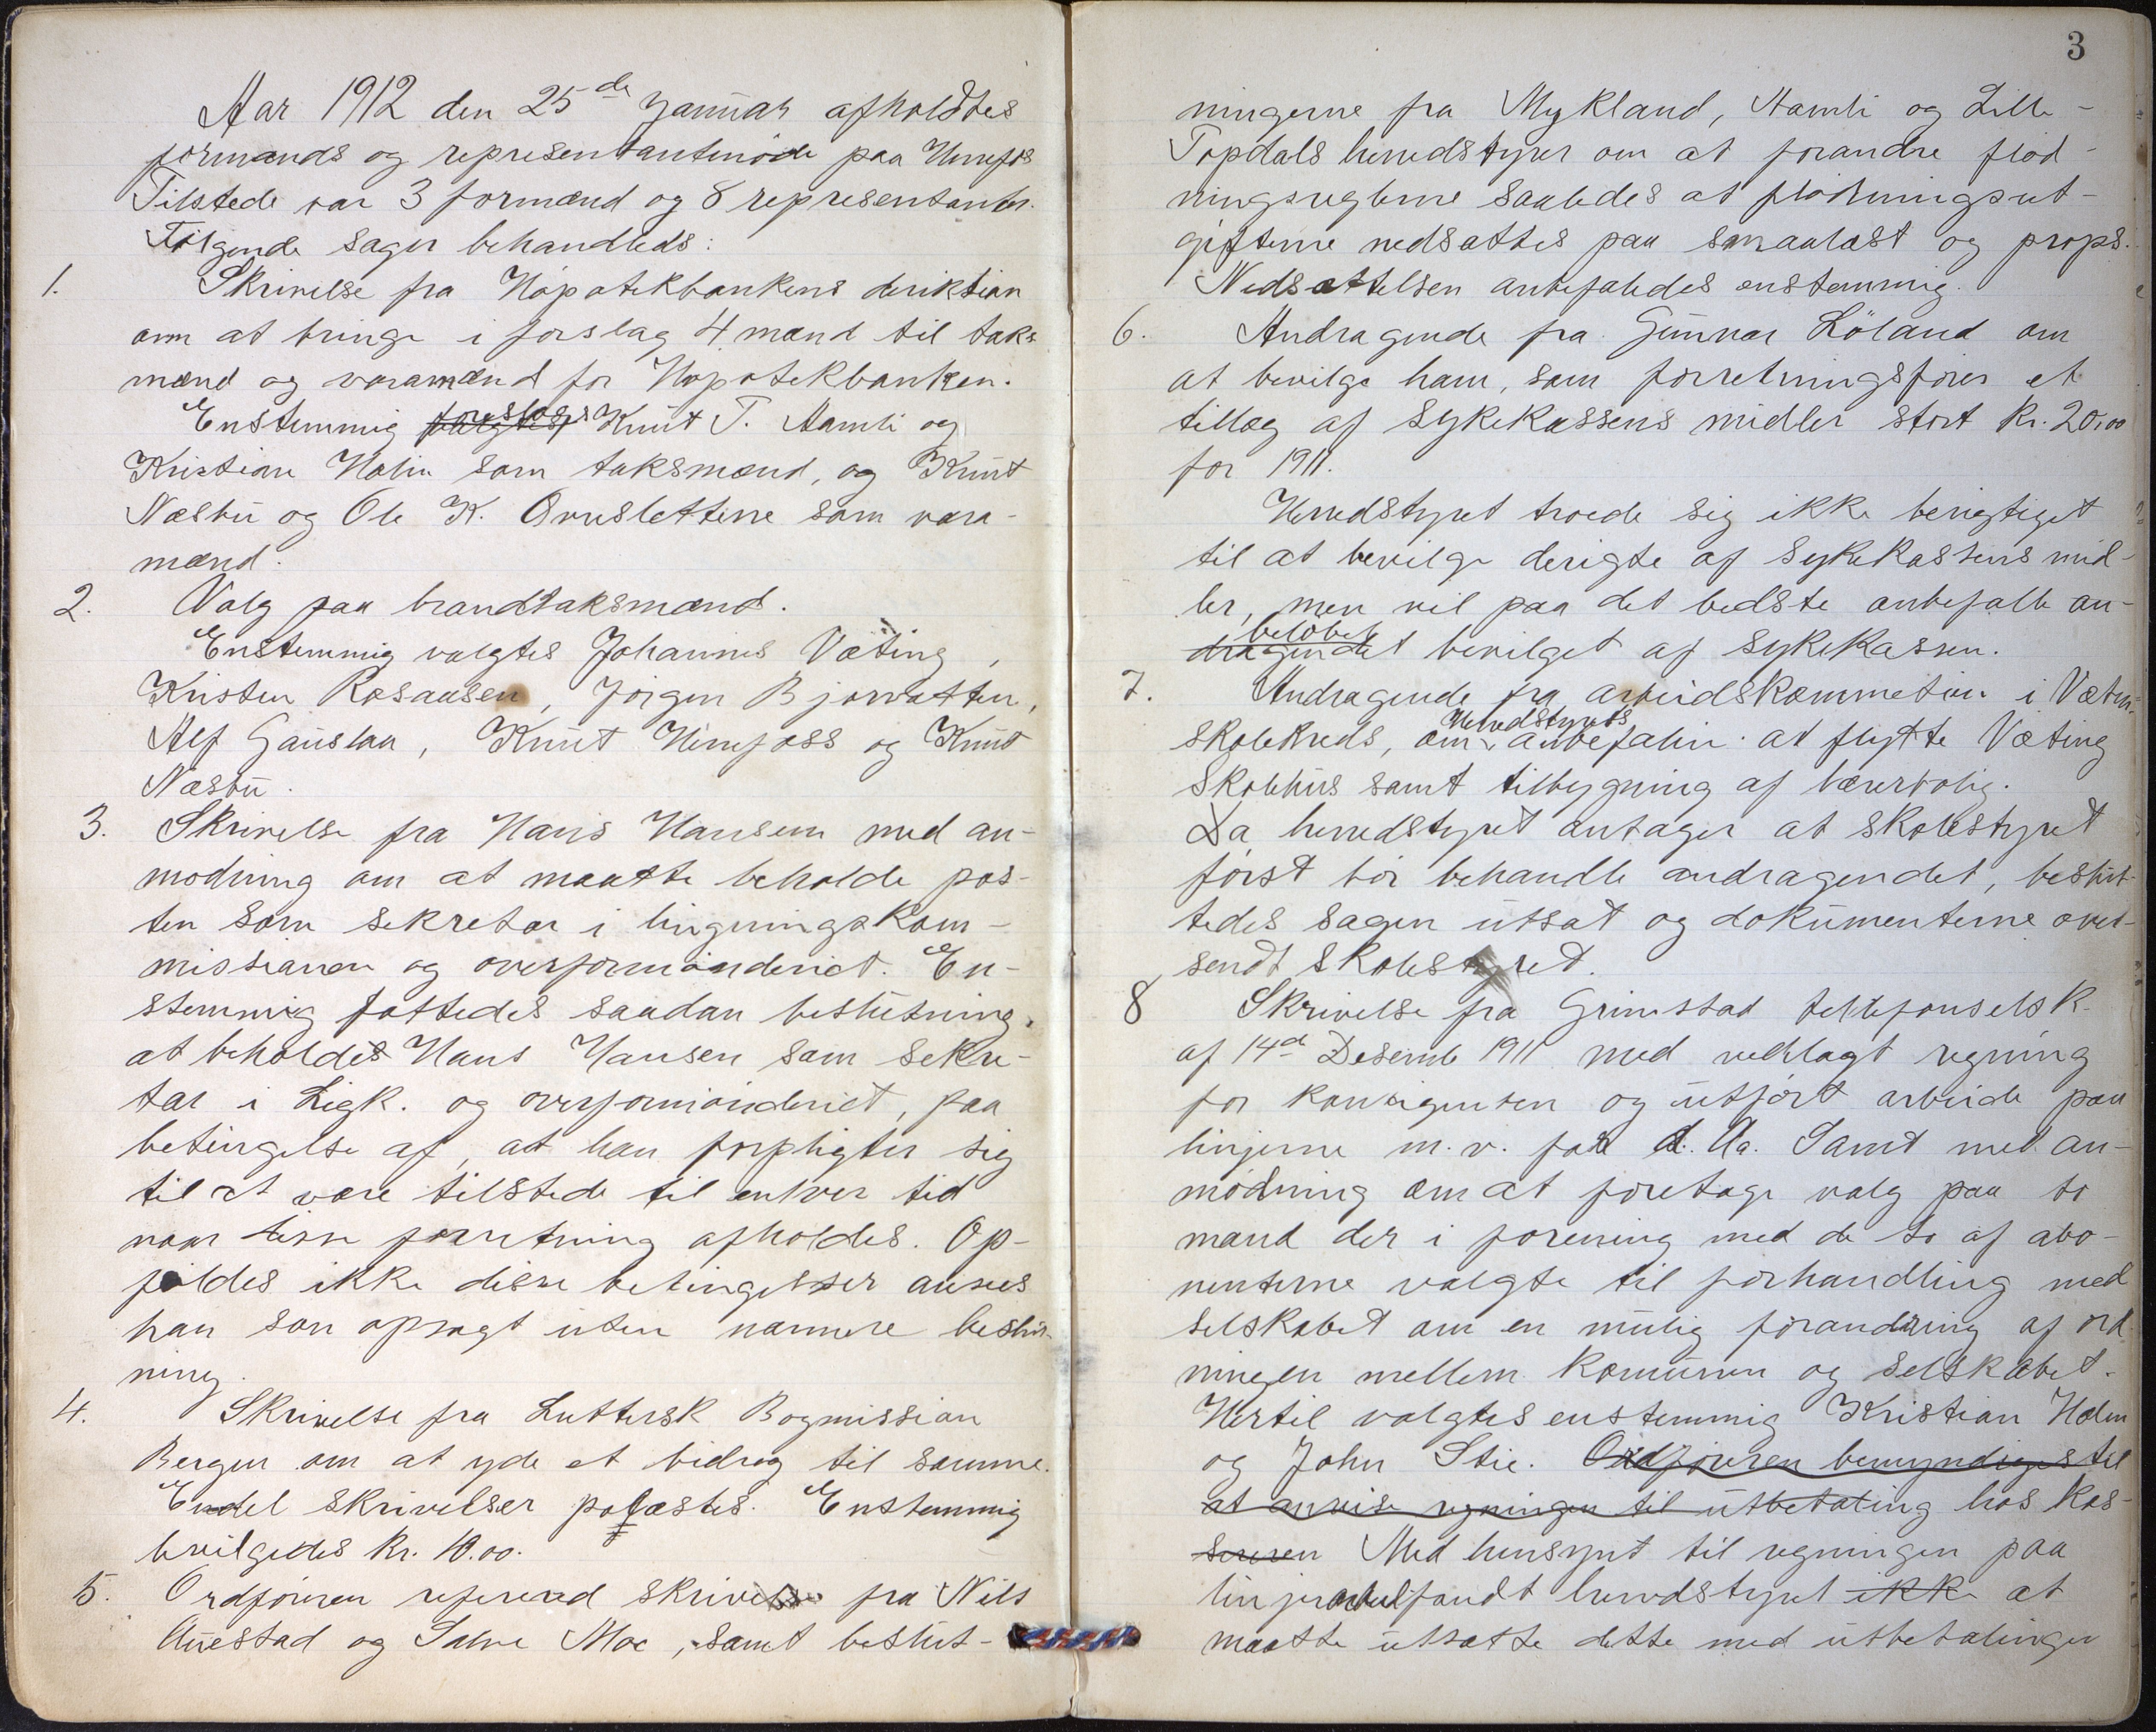 Aar 1912 den 25de Januar afholdtes
formands og representantmöde paa Herefos
Tilstede var 3 formænd og 8 representanter.
Fölgende sager behandleds:
1. Skrivelse fra Hÿpotekbankens deriktion
om at bringe i forslag 4 mænd til taks
mænd og varamænd for Hypotekbanken.
Enstemmig foreslaaes Knut T. Aamli og
Kristian Holm som taksmænd, og Knut
Næsbu og Ole K. Ovnslettene som vara-
mænd.
2. Valg paa brandtaksmænd.
Enstemmig valgtes Johannes Væting,
Kristen Rosaasen, Jörgen Bjorvatten,
Alf Gauslaa, Knut Herefoss og Knut
Næsbu.
3. Skrivelse fra Hans Hansen med an-
modning om at maatte beholde pos-
ten som sekretær i ligningskom-
missionen og overformönderiet. En-
stemmig fattedes saadan beslutning,
at beholdes Hans Hansen som sekre-
tær i Ligk. og overformönderiet, paa
betingelse af, at han forpligter sig
til at være tilstede til enhver tid
naar disse forretning afholdes. Op-
fyldes ikke disse betingelser ansees
han som opsagt uten nærmere beslut-
ning.
4. Skrivelse fra Luthersk Bogmission
Bergen om at yde et bidrag til samme.
Endel skrivelser polæstes. Enstemmig
bevilgedes kr. 10.00.
5. Ordföreren refererd skrivelse fra Nils
Auestad og Salve Moe, samt beslut-
3
ningerne fra Mykland, Aamli og Lille-
Topdals herredstyrer om at forandre flöd-
ningsreglerne saaledes at flödningsut-
gifterne nedsattes paa smaalast og props.
Nedsættelsen anbefaledes enstemmig.
6. Andragende fra Gunnar Löland om
at bevilge ham, som forretningsförer et
tillæg af sykekassens midler stort kr. 20,00
for 1911.
Herredstyret troede sig ikke berigtiget
til at bevilge derigte af sykekassens mid-
ler, men vil paa det bedste anbefalle an-
belöbet
dragendet bevilget af sykekassen.
7. Andragende fra arbeidskommetien i Væting
Herredstyrets
skolekreds, om anbefalin at flytte Væting
skolehus samt tilbygning af lærerbolig.
Da herredstyret antager at skolestyret
först bör behandle andragendet, beslut-
tedes sagen utsat og dokumenterne over-
sendt skolestyret.
8 Skrivelse fra Grimstad telefonselsk.
af 14de Desemb 1911 med vedlagt regning
for kontigensen og utfört arbeide paa
linjerne m.v. for d. Aa. Samt med an-
modning om at foretage valg paa to
mænd der i forening med de to af abo-
nenterne valgte til forhandling med
selskabet om en mulig forandring af ord
ningen mellem komunen og selskabet.
Hertil valgtes enstemmig Kristian Holm
og John Stie. Ordföreren bemyndiges til
at anvise regningen til utbetaling hos kas-
sereren Med hensynt til regningen paa
linjearbeid fandt herredstyret ikke at
maatte utsætte dette med utbetalingen